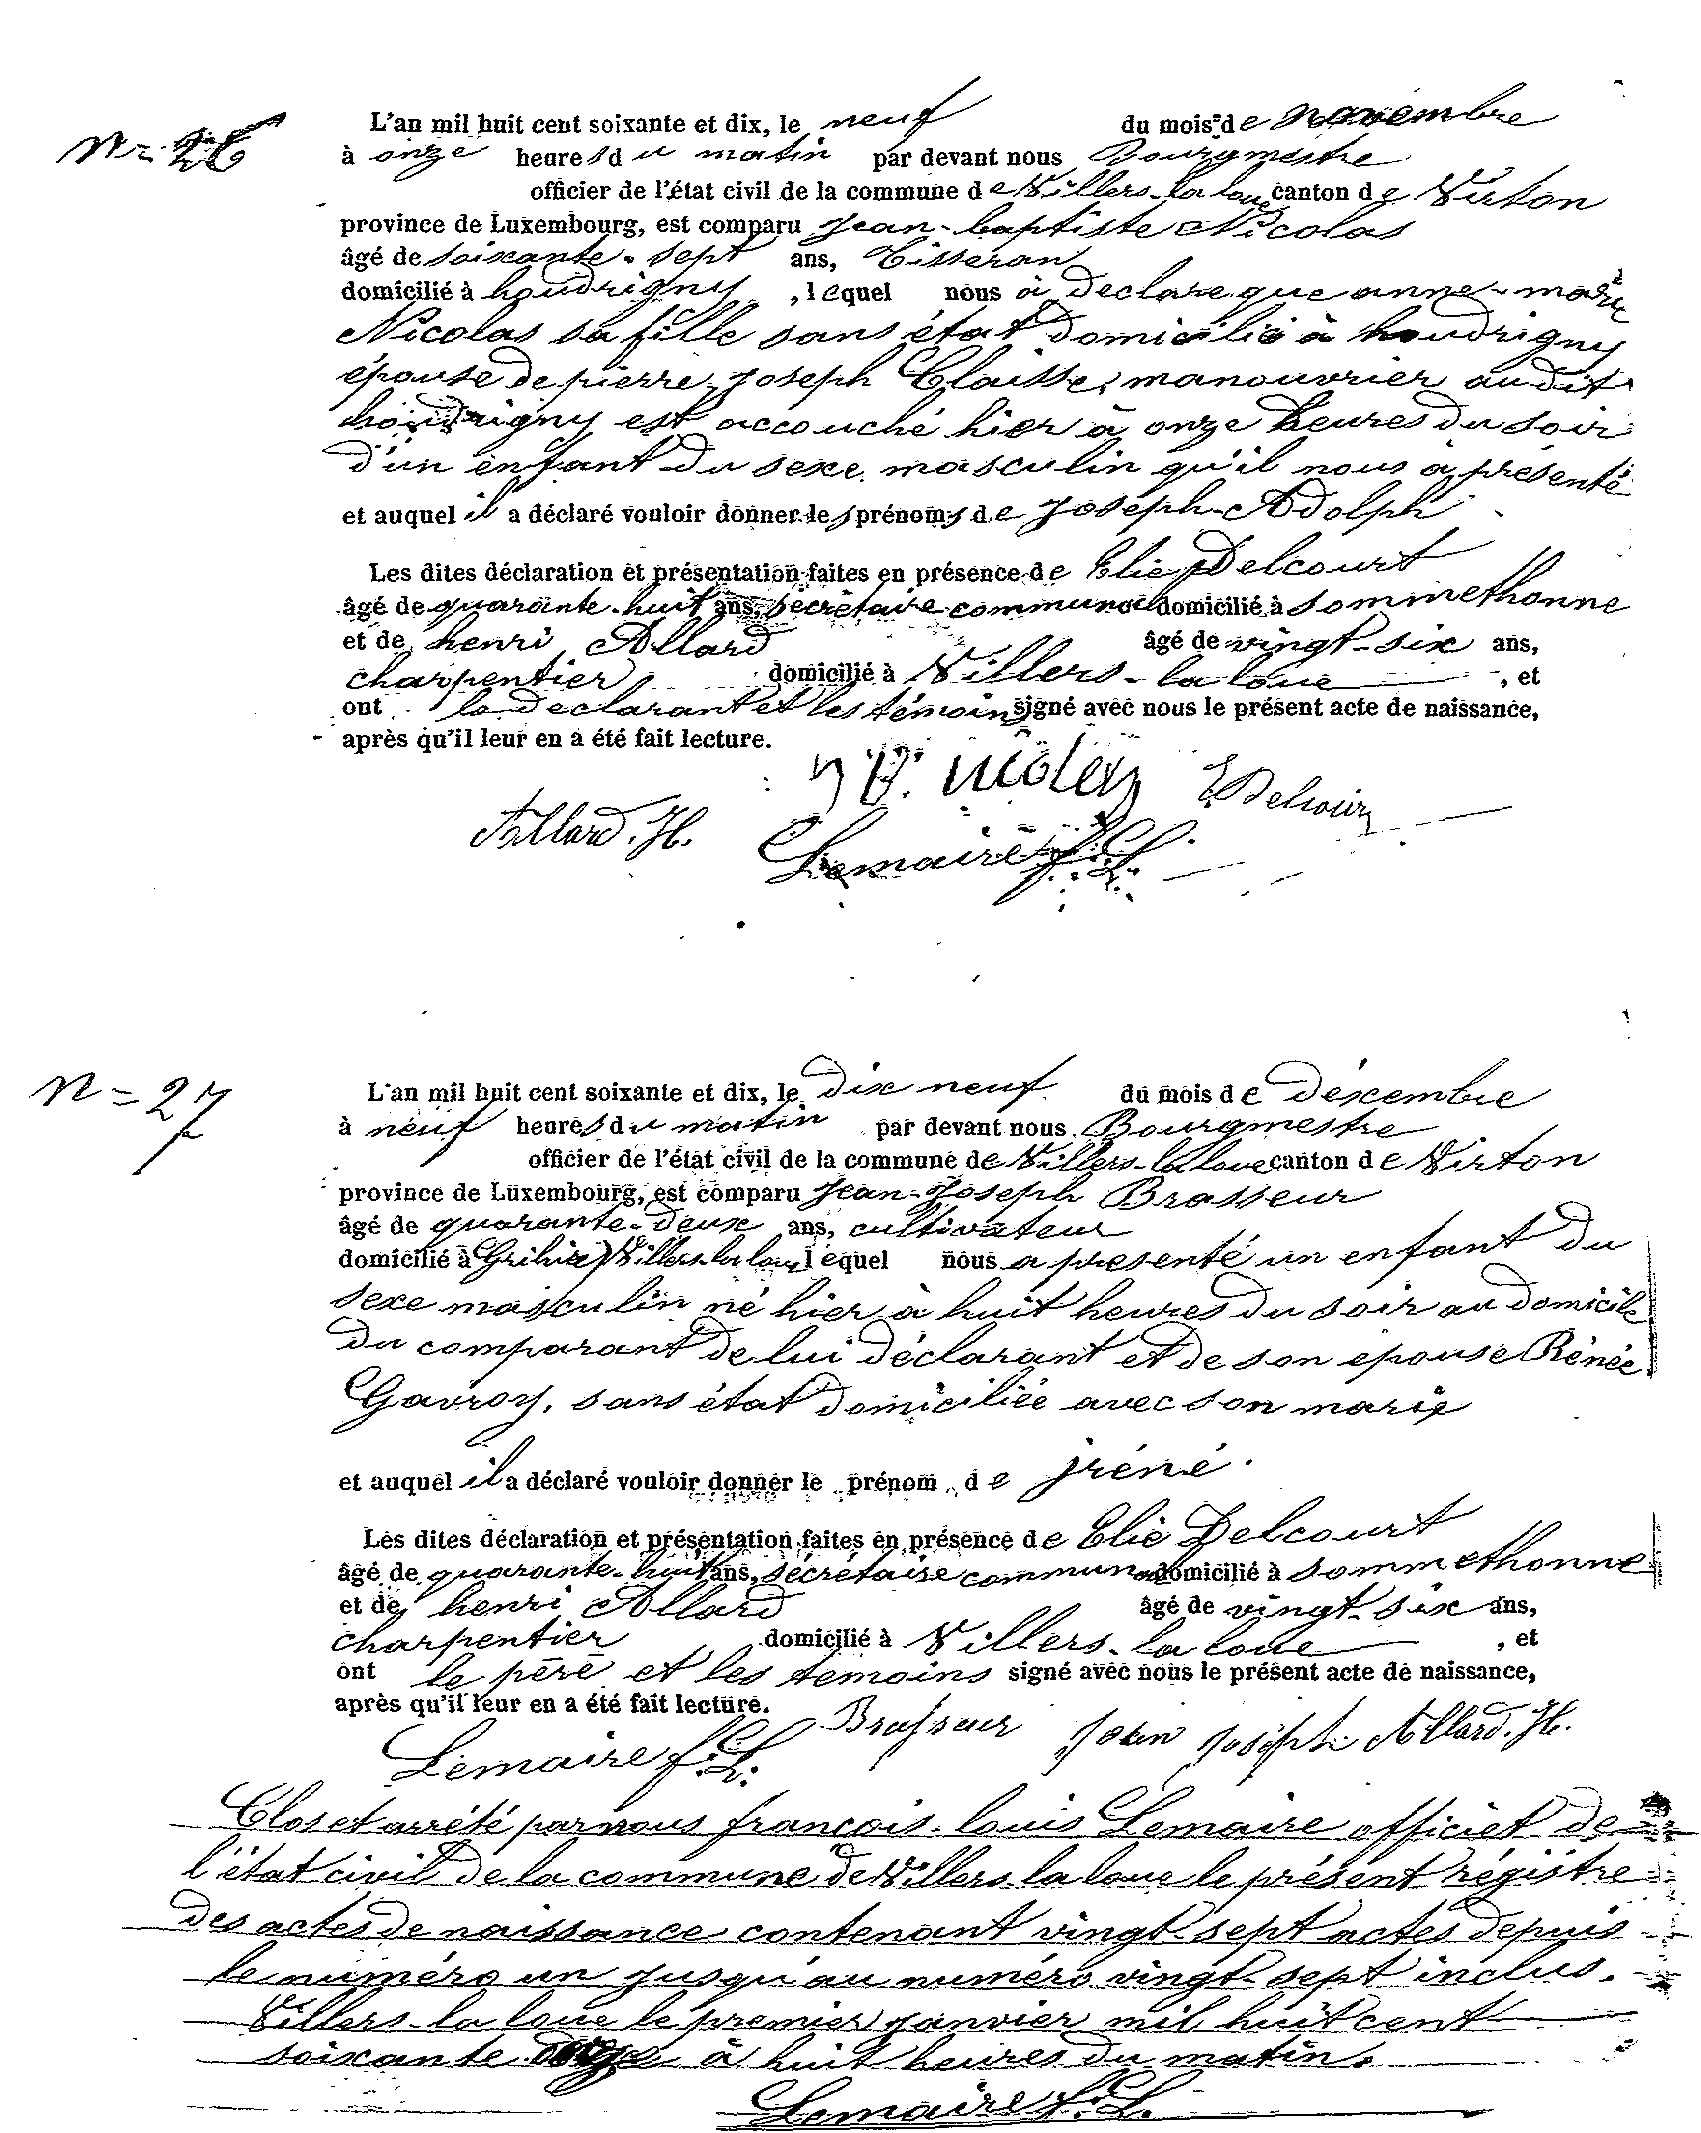 Nr. 26
L'an mil huit cent soixante et dix, le neuf du mois de novembre
à onze heures du matin par devant nous Bourgmestre
officier de l'état civil de la commune de Villers-la loue canton de Virton
province de Luxembourg, est comparu Jean-baptiste Nicolas
âgé de soixante-sept ans, Tisseran
domicilié à houdrigny, lequel nous à declare que anne-marie
Nicolas sa fille sans état domicilié à houdrigny
épouse de pierre-Joseph Claisse, manouvrier au dit
houdrigny est accouché hier à onze heures du soir
d'un enfant du sexe masculin qu'il nous à présenté
et auquel il a déclaré vouloir donner les prénoms de Joseph-Adolph
Les dites déclaration et présentation faites en présence de Elie Delcourt
âgé de quarante-huit ans, sécrétaire communal domicilié à sommethonne
et de henri Allard âgé de vingt-six ans,
charpentier domicilié à Villers-la loue, et
ont le declarant et les témoins signé avec nous le présent acte de naissance,
après qu'il leur en a été fait lecture.
Allard. H.
Lemaire f. L.
N = 27
L'an mil huit cent soixante et dix, le dix neuf du mois de déxcembre
à neuf heures du matin par devant nous Bourgmestre
officier de l'état civil de la commune de Villers-la loue canton de Virton
province de Luxembourg, est comparu Jean-Joseph Brasseur
âgé de quarante-deux ans, cultivateur
domicilié à Villers-la loue lequel nous a presenté un enfant du
sexe masculin né hier à huit heures du soir au domicile
du comparant de lui déclarant et de son épouse Rénée
Gavroy, sans état domiciliée avec son marie
et auquel il a déclaré vouloir donner le prénom de jréné.
Les dites déclaration et présentation faites en présence de Elie Delcourt
âgé de quarante-huit ans, sécrétaire communal domicilié à sommethonne
et de henri Allard âgé de vingt-six ans,
charpentier domicilié à Villers-la loue, et
ont le père et les temoins signé avec nous le présent acte de naissance,
après qu'il leur en a été fait lecture.
Brasseur Jean Joseph Allard. H.
Lemaire f. L.
Clos et arrété par nous françois-louis Lemaire officiet de
l'état civil de la commune de Villers-la loue le présent régistre
des actes de naissance contenant vingt-sept actes depuis
le numéro un jusqu'au numéro vingt-sept inclus.
Villers-la loue le premier janvier mil huit cent
soixante à huit heures du matin.
Lemaire f. L.